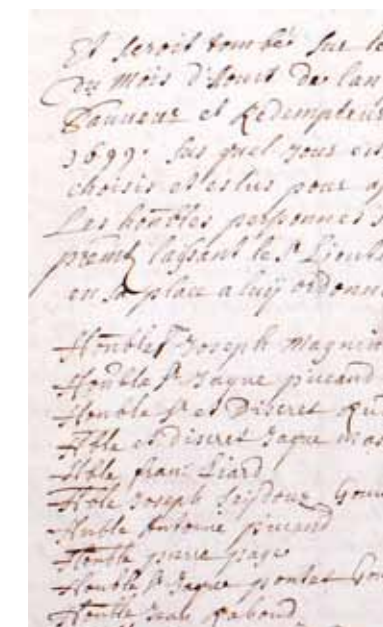 Et seroit tombé sur le
du mois d'Aoust de lan
Sauueur et Redempteur
1699. sus quel jour on
choisis et eslus pour
Les honobles personnes
premt laissant le Sr Lieut
en sa place a luÿ ordonn
Honble Sr Joseph Magnin
Honoble Sr Jaque picand
Honoble Sr et Discret
Hble et discret Jaque mas
Hble franc Liard
Hble Joseph Seÿdoux Gou
Hnble Antoine picand
Honble pierre page
Honble Sr Jaque pontet Go
Honble Jean Raboud